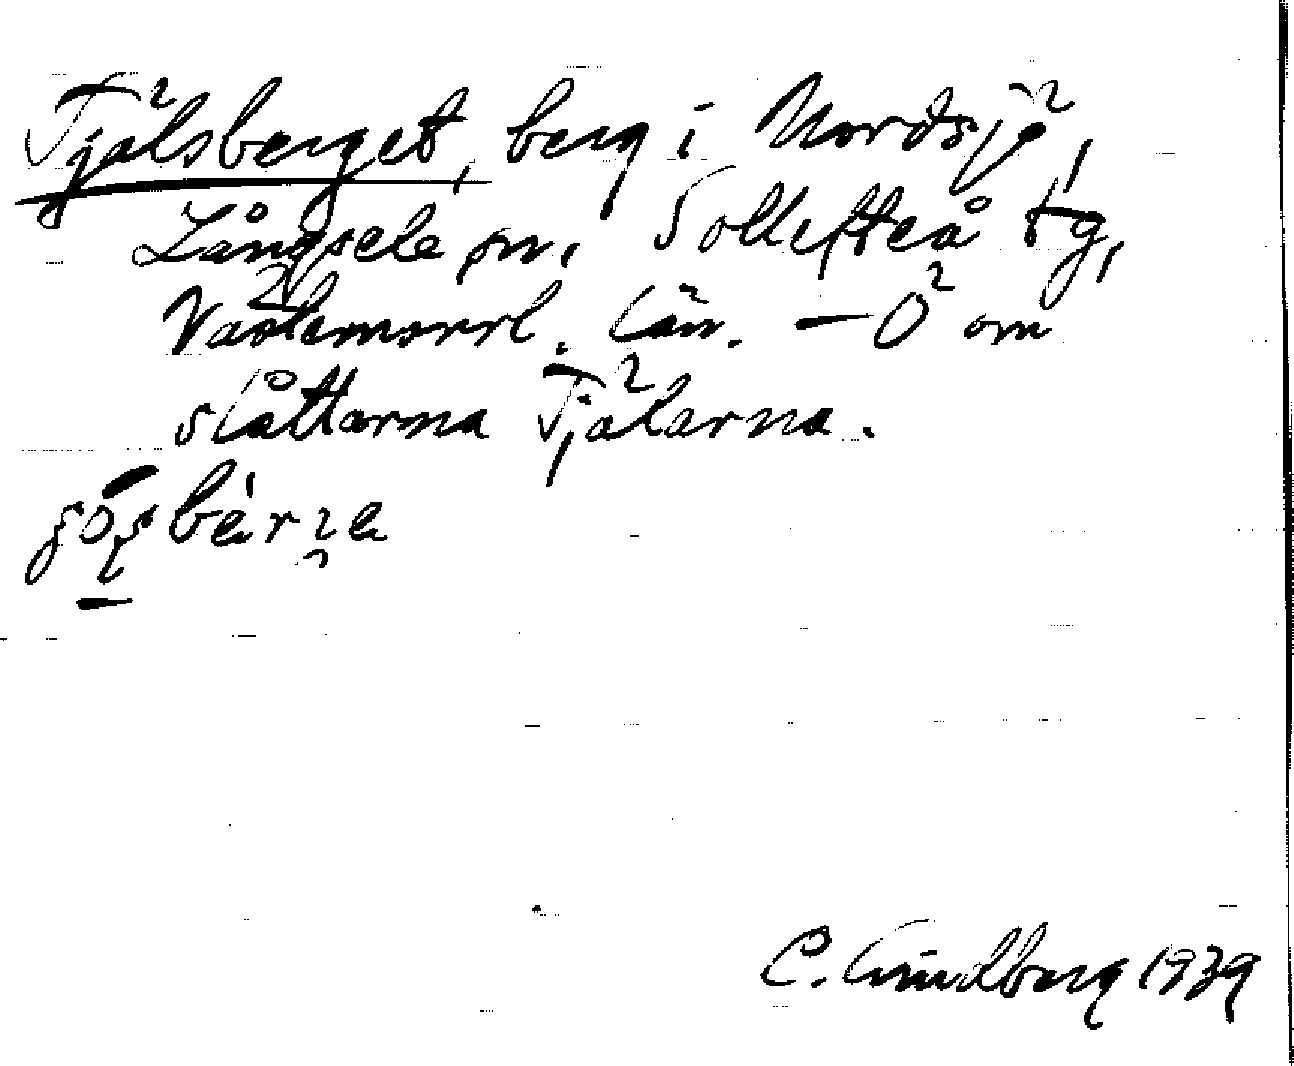 Tjälsberget, berg i Nordsjö,
Långsele sn. Sollefteå tg,
Västernorrl. län. — Ö om
slåttarna Tjälarna.
C. Lindberg 1939